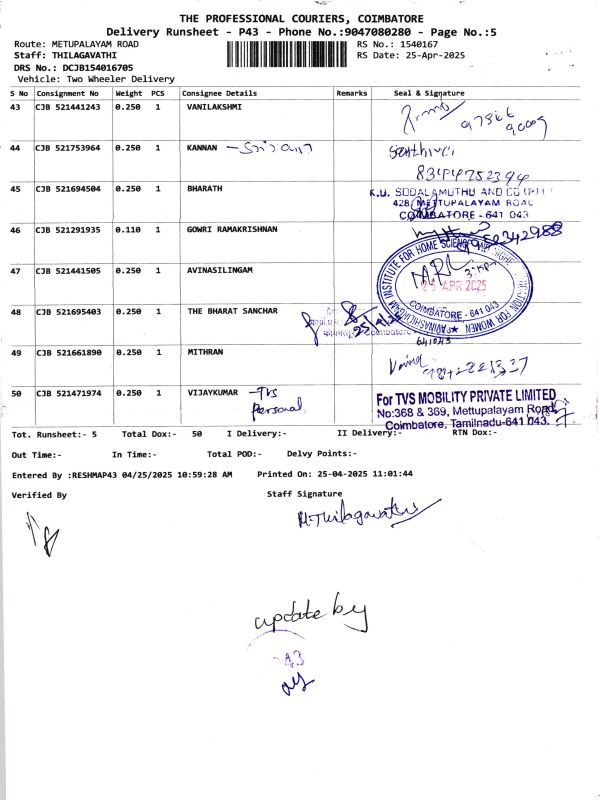 THE PROFESSIONAL COURIERS, COIMBATORE
Delivery Runsheet - P43 - Phone No.:9047080280 - Page No.:5
Route: METUPALAYAM ROAD RS No.: 1540167
Staff: THILAGAVATHI RS Date: 25-Apr-2025
DRS No.: DCJB154016705
Vehicle: Two Wheeler Delivery
S No Consignment No Weight PCS Consignee Details Remarks Seal & Signature
43 CJB 521441243 0.250 1 VANILAKSHMI
97866
90009
44 CJB 521753964 0.250 1 KANNAN
8344752394
45 CJB 521694504 0.250 1 BHARATH
K.U. SODALAMUTHU AND CO (P) LT
428, METTUPALAYAM ROAD
COIMBATORE - 641 043
46 CJB 521291935 0.110 1 GOWRI RAMAKRISHNAN
47 CJB 521441505 0.250 1 AVINASILINGAM
AVINASHILINGAM INSTITUTE FOR HOME SCIENCE AND HIGHER EDUCATION FOR WOMEN
25 APR 2025
COIMBATORE - 641 043
641043
48 CJB 521695403 0.250 1 THE BHARAT SANCHAR
25/4/25
49 CJB 521661890 0.250 1 MITHRAN
50 CJB 521471974 0.250 1 VIJAYKUMAR - TVS
Personal
For TVS MOBILITY PRIVATE LIMITED
No:368 & 369, Mettupalayam Road,
Coimbatore, Tamilnadu-641 043.
Tot. Runsheet:- 5 Total Dox:- 50 I Delivery:- II Delivery:- RTN Dox:-
Out Time:- In Time:- Total POD:- Delvy Points:-
Entered By :RESHMAP43 04/25/2025 10:59:28 AM Printed On: 25-04-2025 11:01:44
Verified By Staff Signature
M.Thilagavathi
update by
43